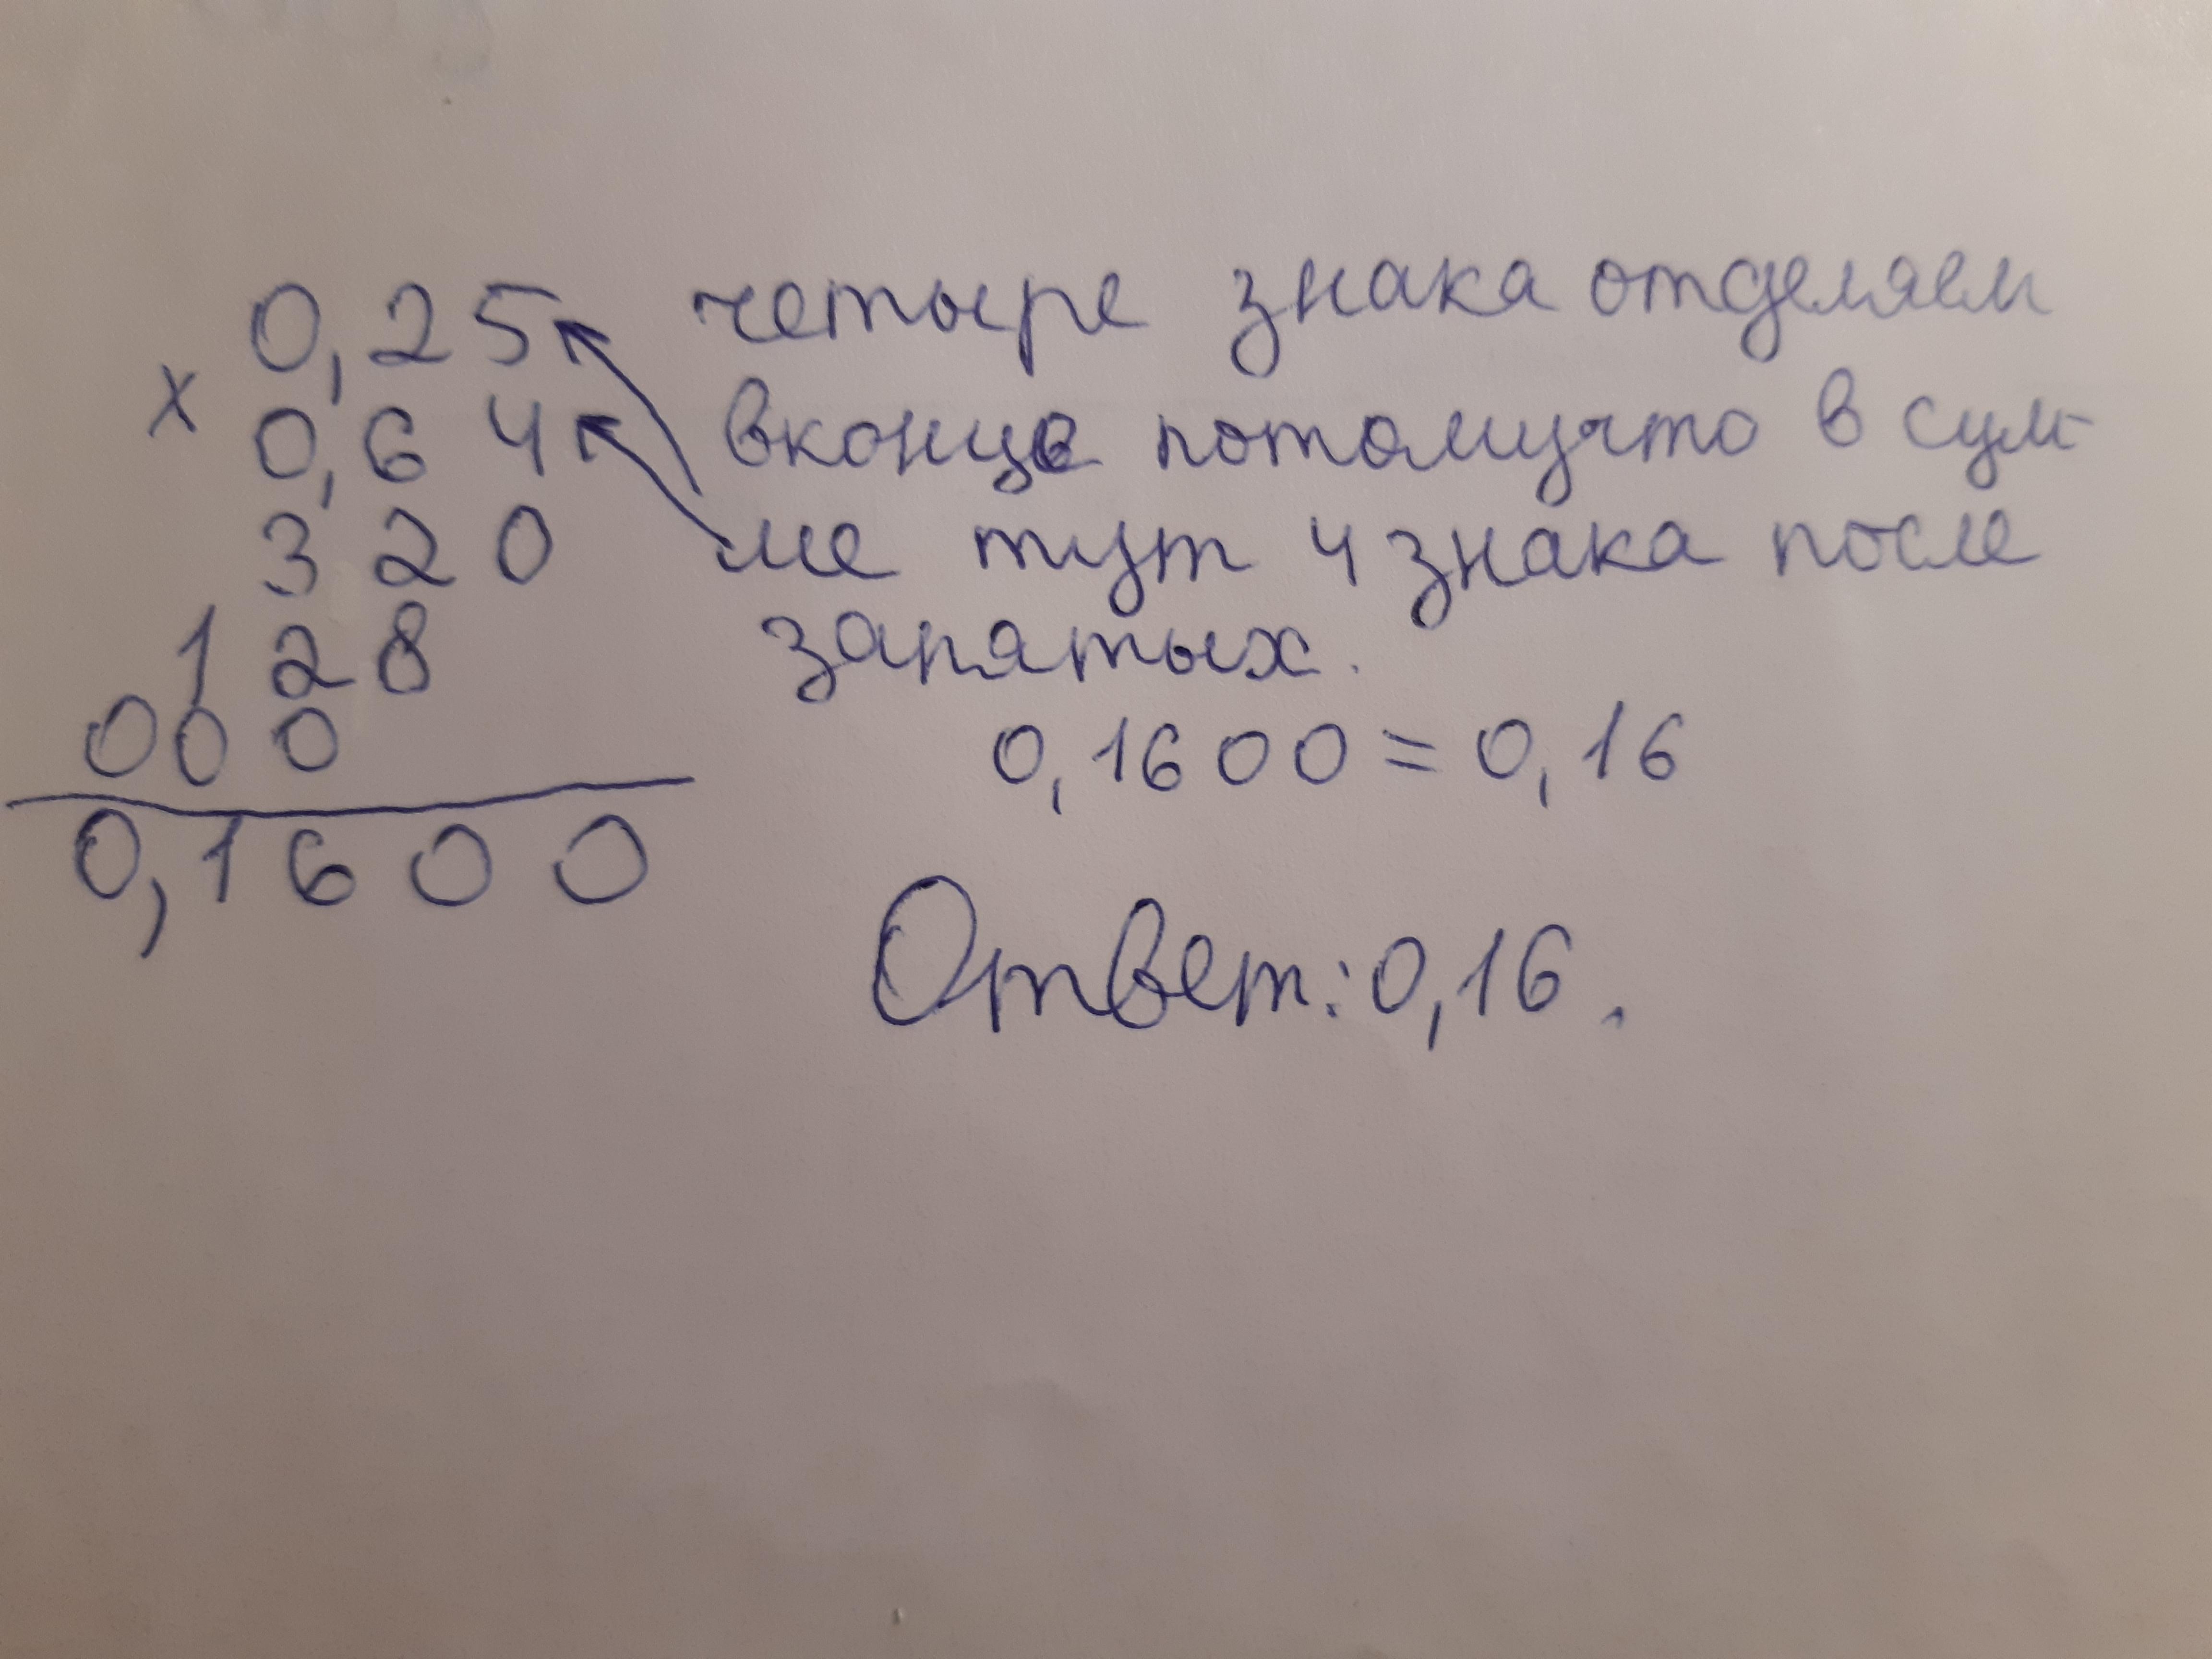 0,25 четыре знака отделяем
х
0,64 вконце потомучто в сум-
320 ме тут 4 знака после
128 запятых.
000 0,1600=0,16
0,1600
Ответ: 0,16.